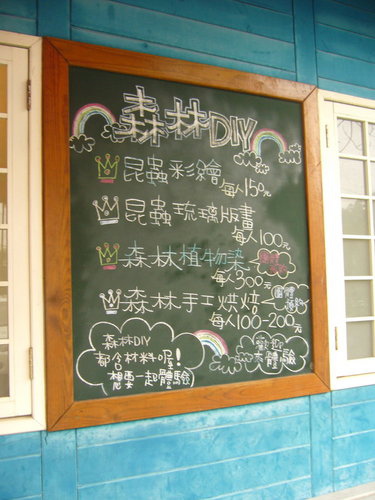 森林DIY
昆蟲彩繪
每人150元
昆蟲琉璃版畫
每人100元
森林植物染
每人300元
森林手工烘焙
團體預約
每人100-200元
森林DIY
都含材料喔!
想要一起體驗
歡迎
來體驗